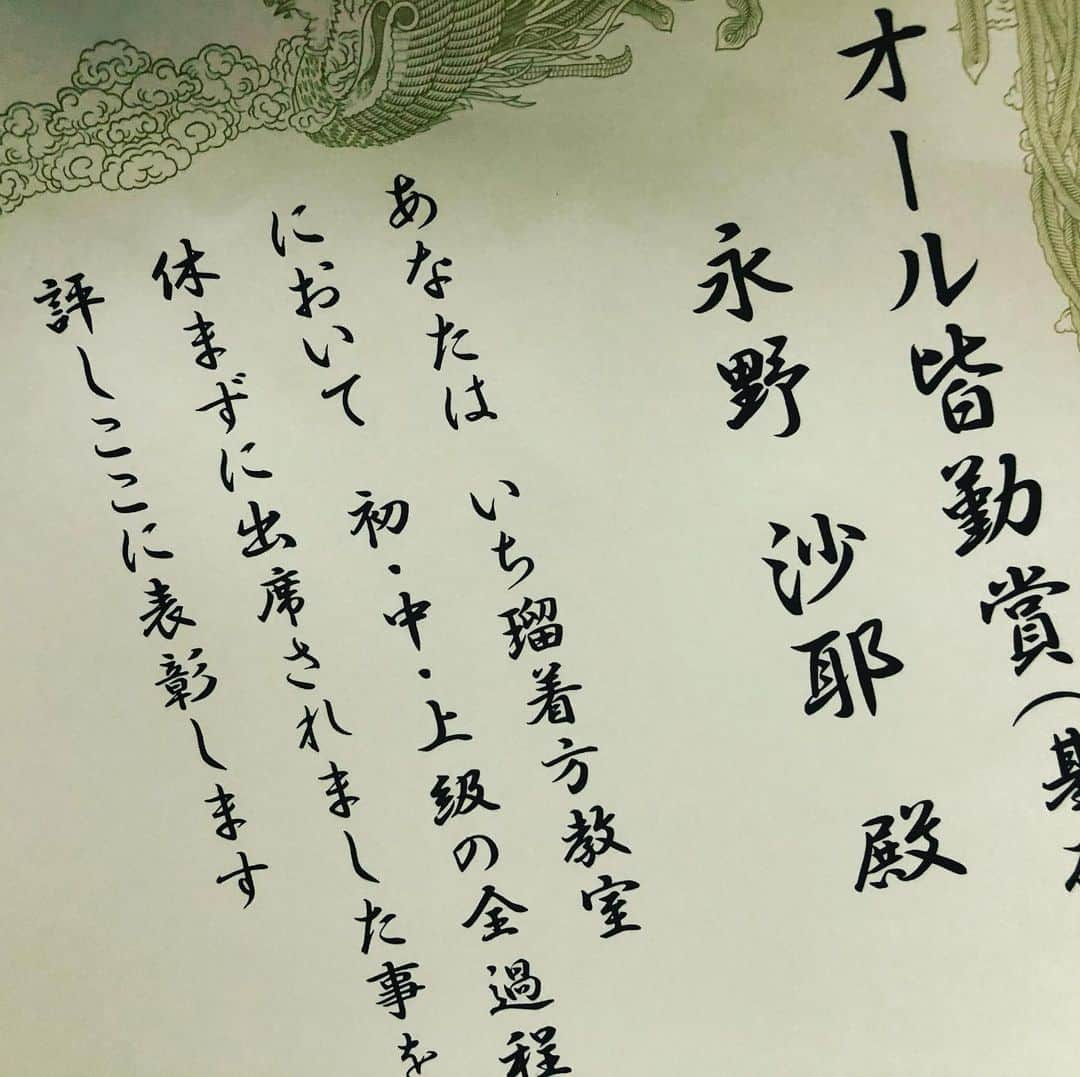 オール皆勤賞（基
永野 沙耶 殿
あなたは いち瑠着方教室
において 初・中・上級の全過程
休まずに出席されました事を
評しここに表彰します